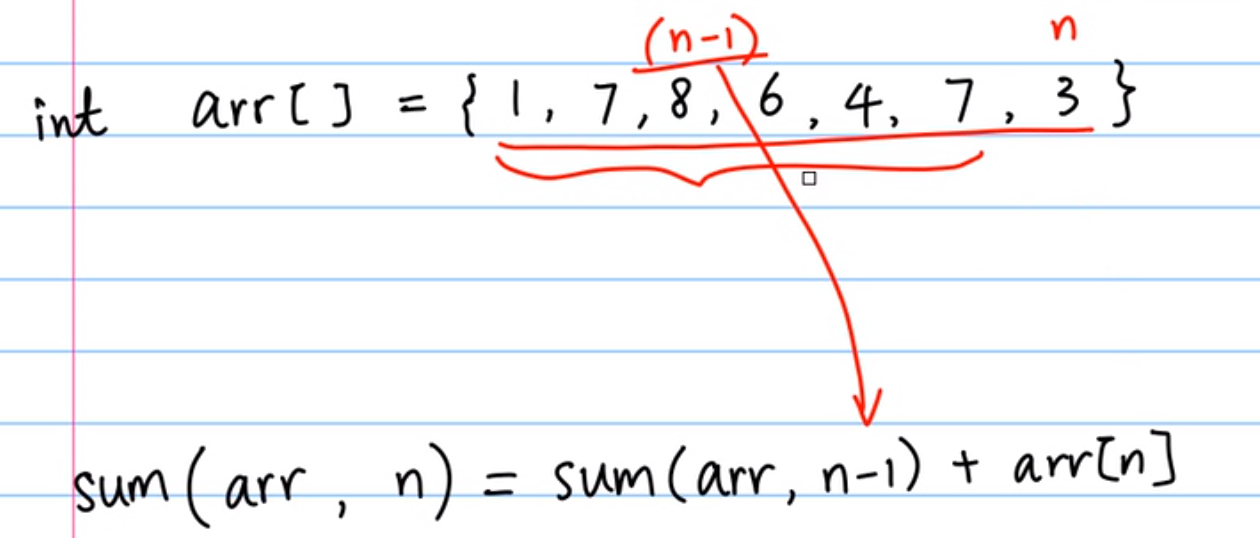 (n-1) n
int arr[ ] = { 1, 7, 8, 6, 4, 7, 3 }
sum(arr, n) = sum(arr, n-1) + arr[n]